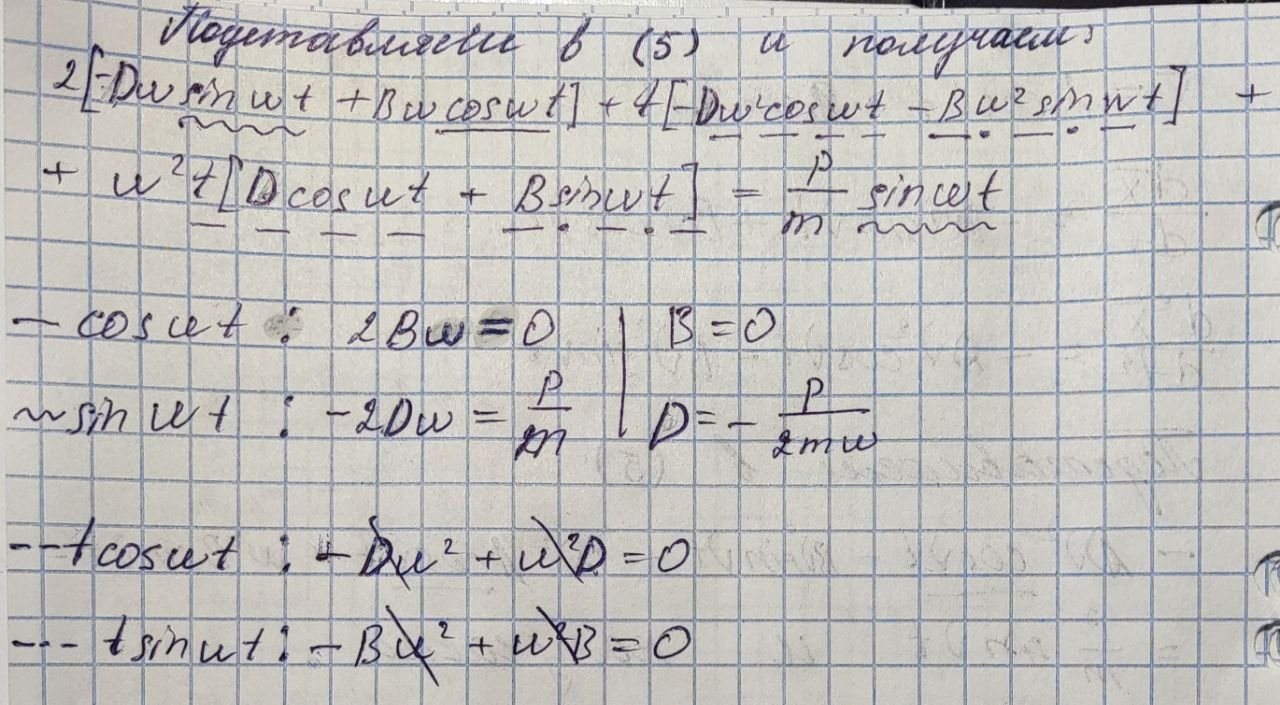 Подставляем в (5) и получаем:
2[-Dω sin ωt + Bω cos ωt] + t[-Dω² cos ωt - Bω² sin ωt] +
+ ω²t[D cos ωt + B sin ωt] = P/m sin ωt
— cos ωt : 2Bω = 0 | B = 0
~ sin ωt : -2Dω = P/m | D = - P/2mω
-- t cos ωt : -Dω² + ω²D = 0
--- t sin ωt : -Bω² + ω²B = 0